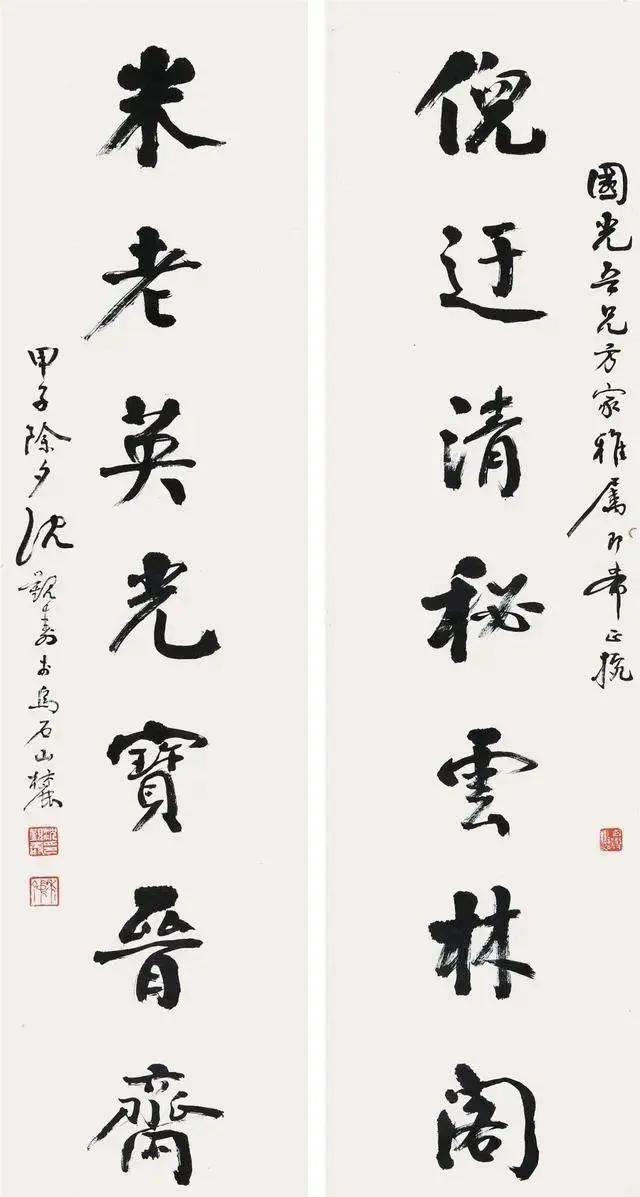 國光吾兄方家雅属即希正腕
倪迂清秘雲林閣
米老英光寶晉齋
甲子除夕沈覲壽於烏石山麓